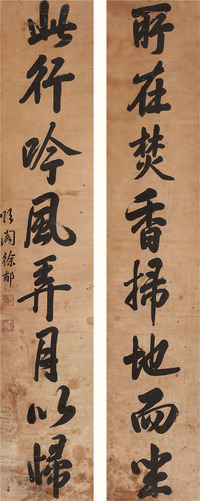 所在焚香掃地而坐
此行吟風弄月以歸
徐郙